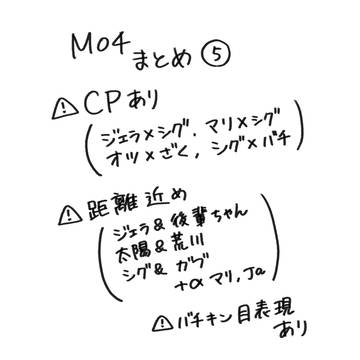 M04
まとめ⑤
⚠CPあり
(ジェラ×シグ、マリ×シグ
オツ×ざく、シグ×バチ)
⚠距離近め
(ジェラ&後輩ちゃん
太陽&荒川
シグ&ガブ
+αマリ,Ja)
⚠バチキン目表現
あり